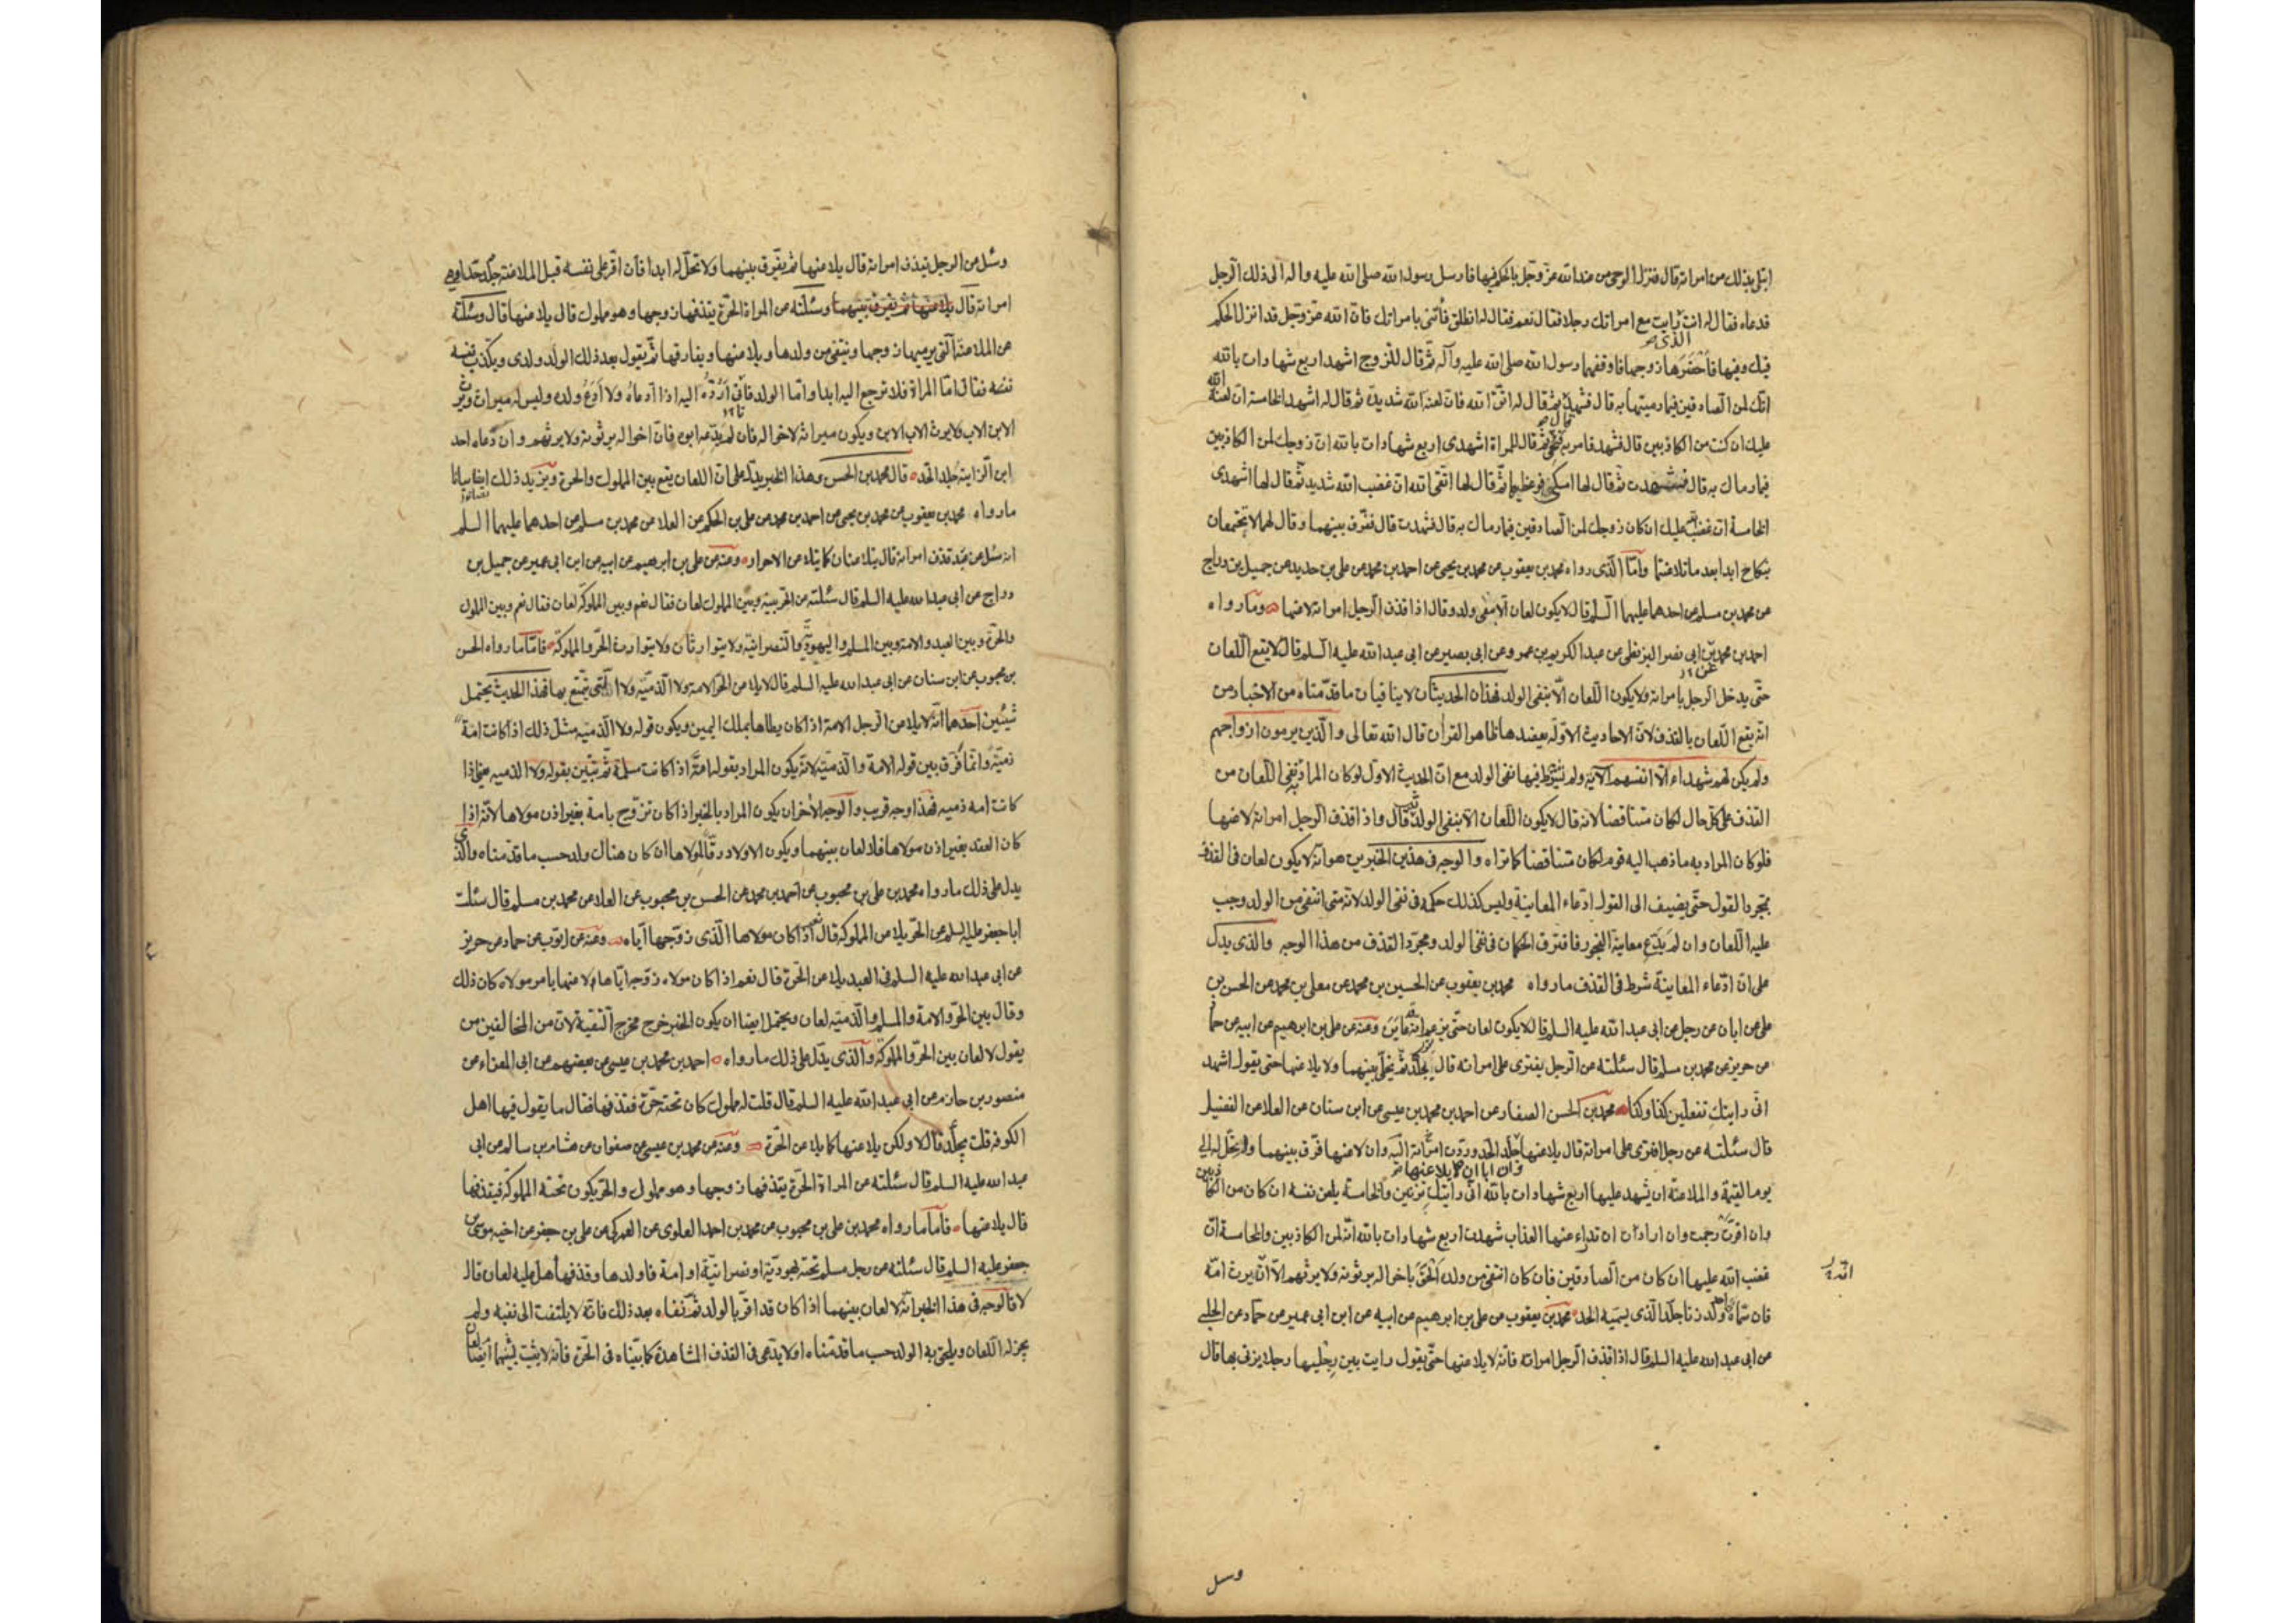 ابتلى بذلك من امراته قال فنزل الوحى من عند الله عز وجل بالحكم فيها فارسل رسول الله صلى الله عليه واله الى ذلك الرجل
فدعاه فقال له انت الذى رايت مع امراتك رجلا فقال نعم فقال له انطلق فأتنى بامراتك فان الله عز وجل قد انزل الحكم
فيك وفيها فأحضرها زوجها فاوقفهما رسول الله صلى الله عليه وآله ثم قال للزوج اشهد اربع شهادات بالله
انك لمن الصادقين فيما رميتها به قال فشهد ثم قال له اتق الله فان لعنة الله شديدة ثم قال له اشهد الخامسة ان لعنة الله
عليك ان كنت من الكاذبين قال فشهد فامر به فنحى ثم قال للمراة اشهدى اربع شهادات بالله ان زوجك لمن الكاذبين
فيما رماك به قال فشهدت ثم قال لها امسكى فوعظها ثم قال لها اتقى الله ان غضب الله شديد ثم قال لها اشهدى
الخامسة ان غضب الله عليك ان كان زوجك لمن الصادقين فيما رماك به قال فشهدت قال ففرق بينهما وقال لهما لا تجتمعان
بنكاح ابدا بعد ما تلاعنتما وأما الذى رواه محمد بن يعقوب عن محمد بن يحيى عن احمد بن محمد عن على بن حديد عن جميل بن دراج
عن محمد بن مسلم عن احدهما عليهما السلم قال لا يكون لعان الا بنفى ولد وقال اذا قذف الرجل امراته لاعنها وما رواه
احمد بن محمد بن ابى نصر البزنطى عن عبد الكريم بن عمرو عن ابى بصير عن ابى عبد الله عليه السلم قال لا يقع اللعان
حتى يدخل الرجل بامراته ولا يكون اللعان الا بنفى الولد فهذان الحديثان لا ينافيان ما قدمناه من الاخبار من
انه يقع اللعان بالقذف لان الاحاديث الاولة يعضدها ظاهر القران قال الله تعالى والذين يرمون ازواجهم
ولم يكن لهم شهداء الا انفسهم الآية ولم يشترط فيها نفى الولد مع ان الحديث الاول لو كان المراد به نفى اللعان من
القذف على كل حال لكان متناقضا لانه قال لا يكون اللعان الا بنفى الولد ثم قال واذا قذف الرجل امراته لاعنها
فلو كان المراد به ما ذهب اليه قوم لكان متناقضا كما تراه والوجه فى هذين الخبرين هو انه لا يكون لعان فى القذف
بمجرد القول حتى يضيف الى القول ادعاء المعاينة وليس كذلك حكمه فى نفى الولد لانه متى انتفى من الولد وجب
عليه اللعان وان لم يدع معاينة الفجور فافترق الحكمان فى نفى الولد ومجرد القذف من هذا الوجه والذى يدل
على ان ادعاء المعاينة شرط فى القذف ما رواه محمد بن يعقوب عن الحسين بن محمد عن معلى بن محمد عن الحسن بن
على عن ابان عن رجل عن ابى عبد الله عليه السلم قال لا يكون لعان حتى يزعم انه قد عاين وعنه عن على بن ابرهيم عن ابيه عن حماد
عن حريز عن محمد بن مسلم قال سئلته عن الرجل يفترى على امراته قال يجلد ثم يخلى بينهما ولا يلاعنها حتى يقول اشهد
انى رايتك تفعلين كذا وكذا محمد بن الحسن الصفار عن احمد بن محمد بن عيسى عن ابن سنان عن العلا عن الفضيل
قال سئلته عن رجل افترى على امراته قال يلاعنها وان ابا ان يلاعنها جلد الحد وردت امراته اليه وان لاعنها فرق بينهما ولم يحل له الى
يوم القيمة والملاعنة ان يشهد عليها اربع شهادات بالله انى رايتك تزنين والخامسة يلعن نفسه ان كان من الكاذبين
وان اقرت رجمت وان ارادت ان تدراء عنها العذاب شهدت اربع شهادات بالله انه لمن الكاذبين والخامسة ان
غضب الله عليها ان كان من الصادقين فان كان انتفى من ولده الحق باخواله يرثونه ولا يرثهم الا ان يرث امه
فان سماه احد ولد زنا جلد الذى يسميه الحد محمد بن يعقوب عن على بن ابرهيم عن ابيه عن ابن ابى عمير عن حماد عن الحلبى
عن ابى عبد الله عليه السلم قال اذا قذف الرجل امراته فانه لا يلاعنها حتى يقول رايت بين رجليها رجلا يزنى بها قال
وسئل
وسئل عن الرجل يقذف امراته قال يلاعنها ثم يفرق بينهما ولا تحل له ابدا فان اقر على نفسه قبل الملاعنة جلد حدا وهى
امراته قال يلاعنها ثم يفرق بينهما وسئلته عن المراة الحرة يقذفها زوجها وهو مملوك قال يلاعنها قال وسئلته
عن الملاعنة التى يرميها زوجها وينتفى من ولدها ويلاعنها ويفارقها ثم يقول بعد ذلك الولد ولدى ويكذب نفسه
فقال اما المراة فلا ترجع اليه ابدا واما الولد فانى ارده اليه اذا ادعاه ولا ادع ولده وليس له ميراث ويرث
الابن الاب ولا يرث الاب الابن ويكون ميراثه لاخواله فان لم يدعه ابوه فان اخواله يرثونه ولا يرثهم وان دعاه احد
ابن الزانية جلد الحد قال محمد بن الحسن وهذا الخبر يدل على ان اللعان يقع بين المملوك والحرة ويزيد ذلك ايضا بيانا
ما رواه محمد بن يعقوب عن محمد بن يحيى عن احمد بن محمد عن على بن الحكم عن العلا عن محمد بن مسلم عن احدهما عليهما السلم
انه سئل عن عبد قذف امراته قال يتلاعنان كما يتلاعن الاحرار وعنه عن على بن ابرهيم عن ابيه عن ابن ابى عمير عن جميل بن
دراج عن ابى عبد الله عليه السلم قال سئلته عن الحر بينه وبين المملوكة لعان فقال نعم وبين المملوك
والحرة وبين العبد والامة وبين المسلم واليهودية والنصرانية ولا يتوارثان ولا يتوارث الحر والمملوكة فأما ما رواه الحسن
بن محبوب عن ابن سنان عن ابى عبد الله عليه السلم قال لا يلاعن الحر الامة ولا الذمية ولا التى يتمتع بها فهذا الحديث يحتمل
شيئين احدهما انه لا يلاعن الرجل الامة اذا كان يطاها بملك اليمين ويكون قوله ولا الذمية مثل ذلك اذا كانت امة
ذمية وانما فرق بين قوله الامة والذمية لانه يكون المراد بقوله امة اذا كانت مسلمة ثم تبين بقوله ولا الذميه متى اذا
كانت امه ذميه فهذا وجه قريب والوجه الاخر ان يكون المراد بالخبر اذا كان تزوج بامة بغير اذن مولاها لانه اذا
كان العقد بغير اذن مولاها فلا لعان بينهما ويكون الاولاد رقا لمولاها ان كان هناك ولد حسب ما قدمناه والذى
يدل على ذلك ما رواه محمد بن على بن محبوب عن احمد بن محمد عن الحسن بن محبوب عن العلا عن محمد بن مسلم قال سئلت
ابا جعفر عليه السلم عن الحر يلاعن المملوكة قال نعم اذا كان مولاها الذى زوجها اياه وعنه عن ايوب عن حماد عن حريز
عن ابى عبد الله عليه السلم فى العبد يلاعن الحرة قال نعم اذا كان مولاه زوجه اياها لاعنها بامر مولاه كان ذلك
وقال بين الحر والامة والمسلم والذمية لعان ويحتمل ايضا ان يكون الخبر خرج مخرج التقية لان من المخالفين من
يقول لا لعان بين الحر والمملوكة والذى يدل على ذلك ما رواه احمد بن محمد بن عيسى عن بعضهم عن ابى المعزاء عن
منصور بن حازم عن ابى عبد الله عليه السلم قال قلت له مملوك كان تحته حرة فقذفها فقال ما يقول فيها اهل
الكوفة قلت يجلد قال لا ولكن يلاعنها كما يلاعن الحرة وعنه عن محمد بن عيسى عن صفوان عن هشام بن سالم عن ابى
عبد الله عليه السلم قال سئلته عن المراة الحرة يقذفها زوجها وهو مملوك والحر يكون تحته المملوكة فيقذفها
قال يلاعنها فأما ما رواه محمد بن على بن محبوب عن محمد بن احمد العلوى عن العمركى عن على بن جعفر عن اخيه موسى بن
جعفر عليه السلم قال سئلته عن رجل مسلم تحته يهودية او نصرانية او امة فاولدها وقذفها هل عليه لعان قال
لا فالوجه فى هذا الخبر انه لا لعان بينهما اذا كان قد اقر بالولد ثم نفاه بعد ذلك فانه لا يلتفت الى نفيه ولم
يجز له اللعان ويلحق به الولد حسب ما قدمناه او لا يدعى فى القذف المشاهدة كما بيناه فى الحرة فانه لا يثبت بينهما ايضا لعان